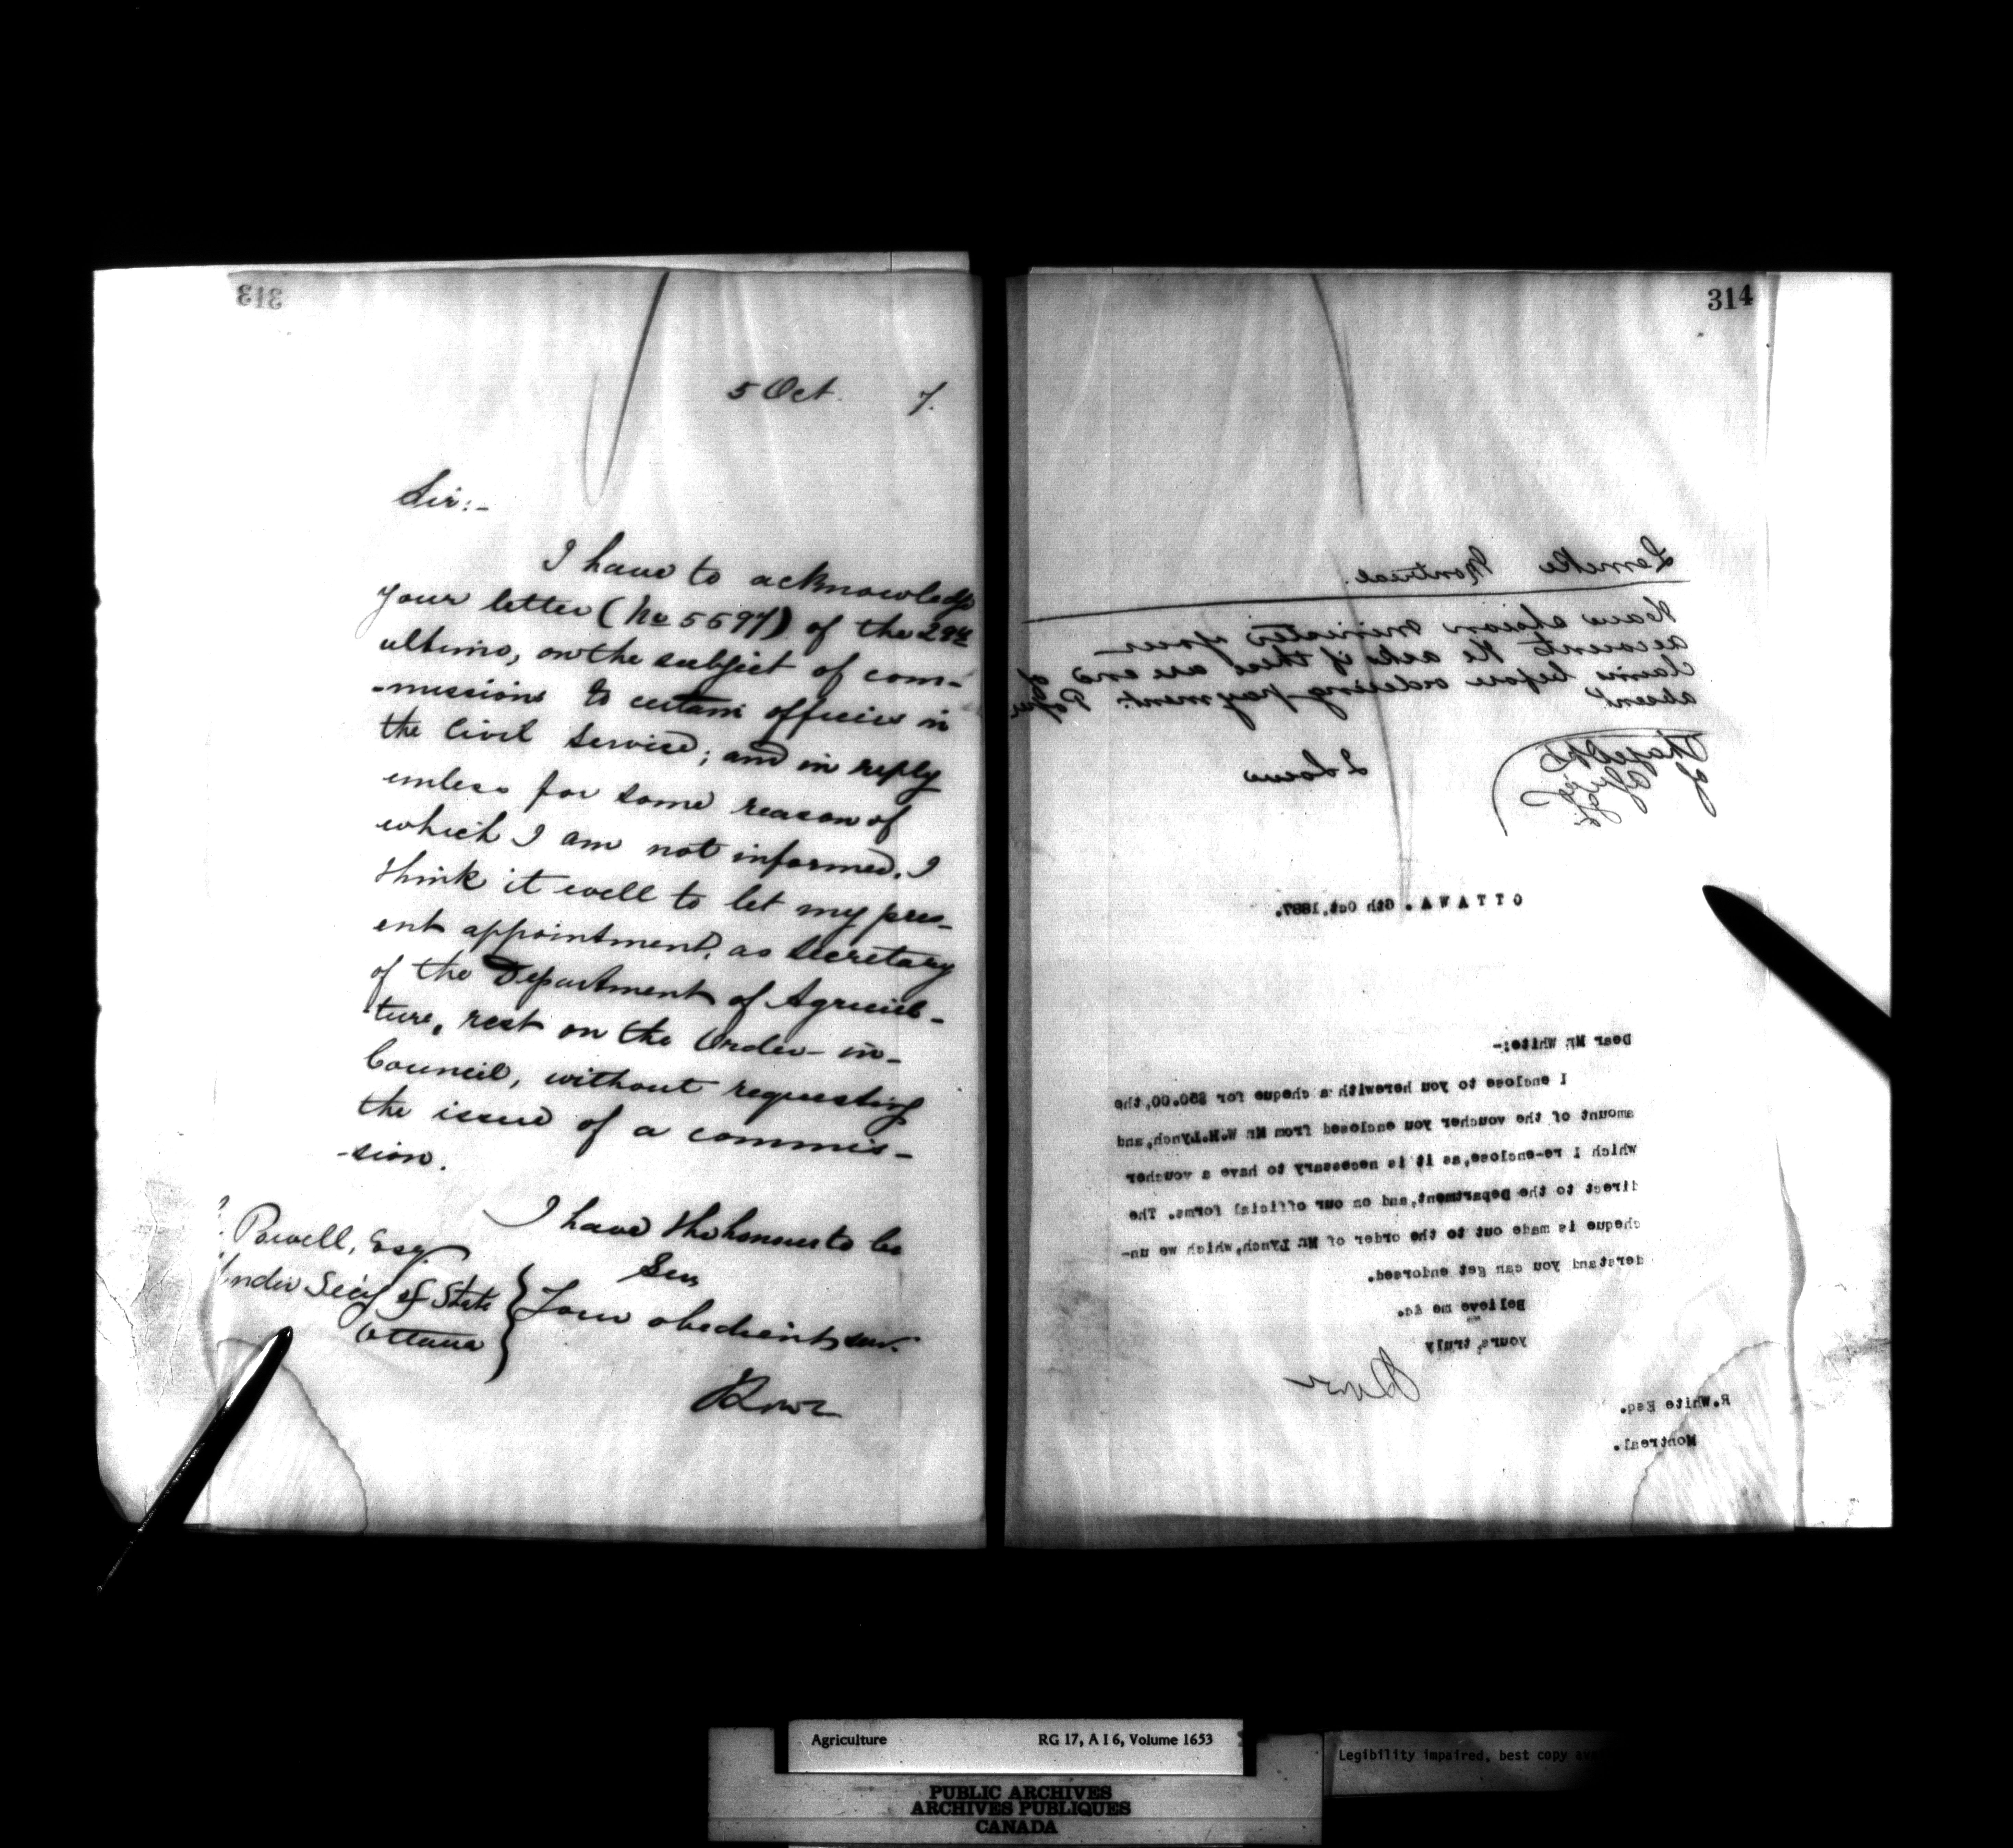 313
5 Oct. 7.
Sir:-
I have to acknowledge
your letter (No 5597) of the 29th
ultimo, on the subject of com-
-missions to certain officers in
the Civil Service; and in reply
unless for some reason of
which I am not informed, I
think it well to let my pres-
ent appointment, as Secretary
of the Department of Agricul-
ture, rest on the Order-in-
Council, without requesting
the issue of a commis-
-sion.
I have the honour to be
Sir
Your obedient serv.
JLowe
Powell, Esq.
Under Secy of State
Ottawa
314
Montreal.
Have shewn minister your
account He asks if these are end of
claims before ordering payment. Pope
absent
J Lowe
OTTAWA. 6th Oct, 1887.
Dear Mr White:-
I enclose to you herewith a cheque for $50.00, the
amount of the voucher you enclosed from Mr W.H.Lynch, and
which I re-enclose, as it is necessary to have a voucher
direct to the Department, and on our official forms. The
cheque is made out to the order of Mr. Lynch, which we un-
derstand you can get endorsed.
Believe me &c.
yours, truly
JLowe
R.White Esq.
Montreal.
Agriculture RG 17, A I 6, Volume 1653
Legibility impaired, best copy
PUBLIC ARCHIVES
ARCHIVES PUBLIQUES
CANADA